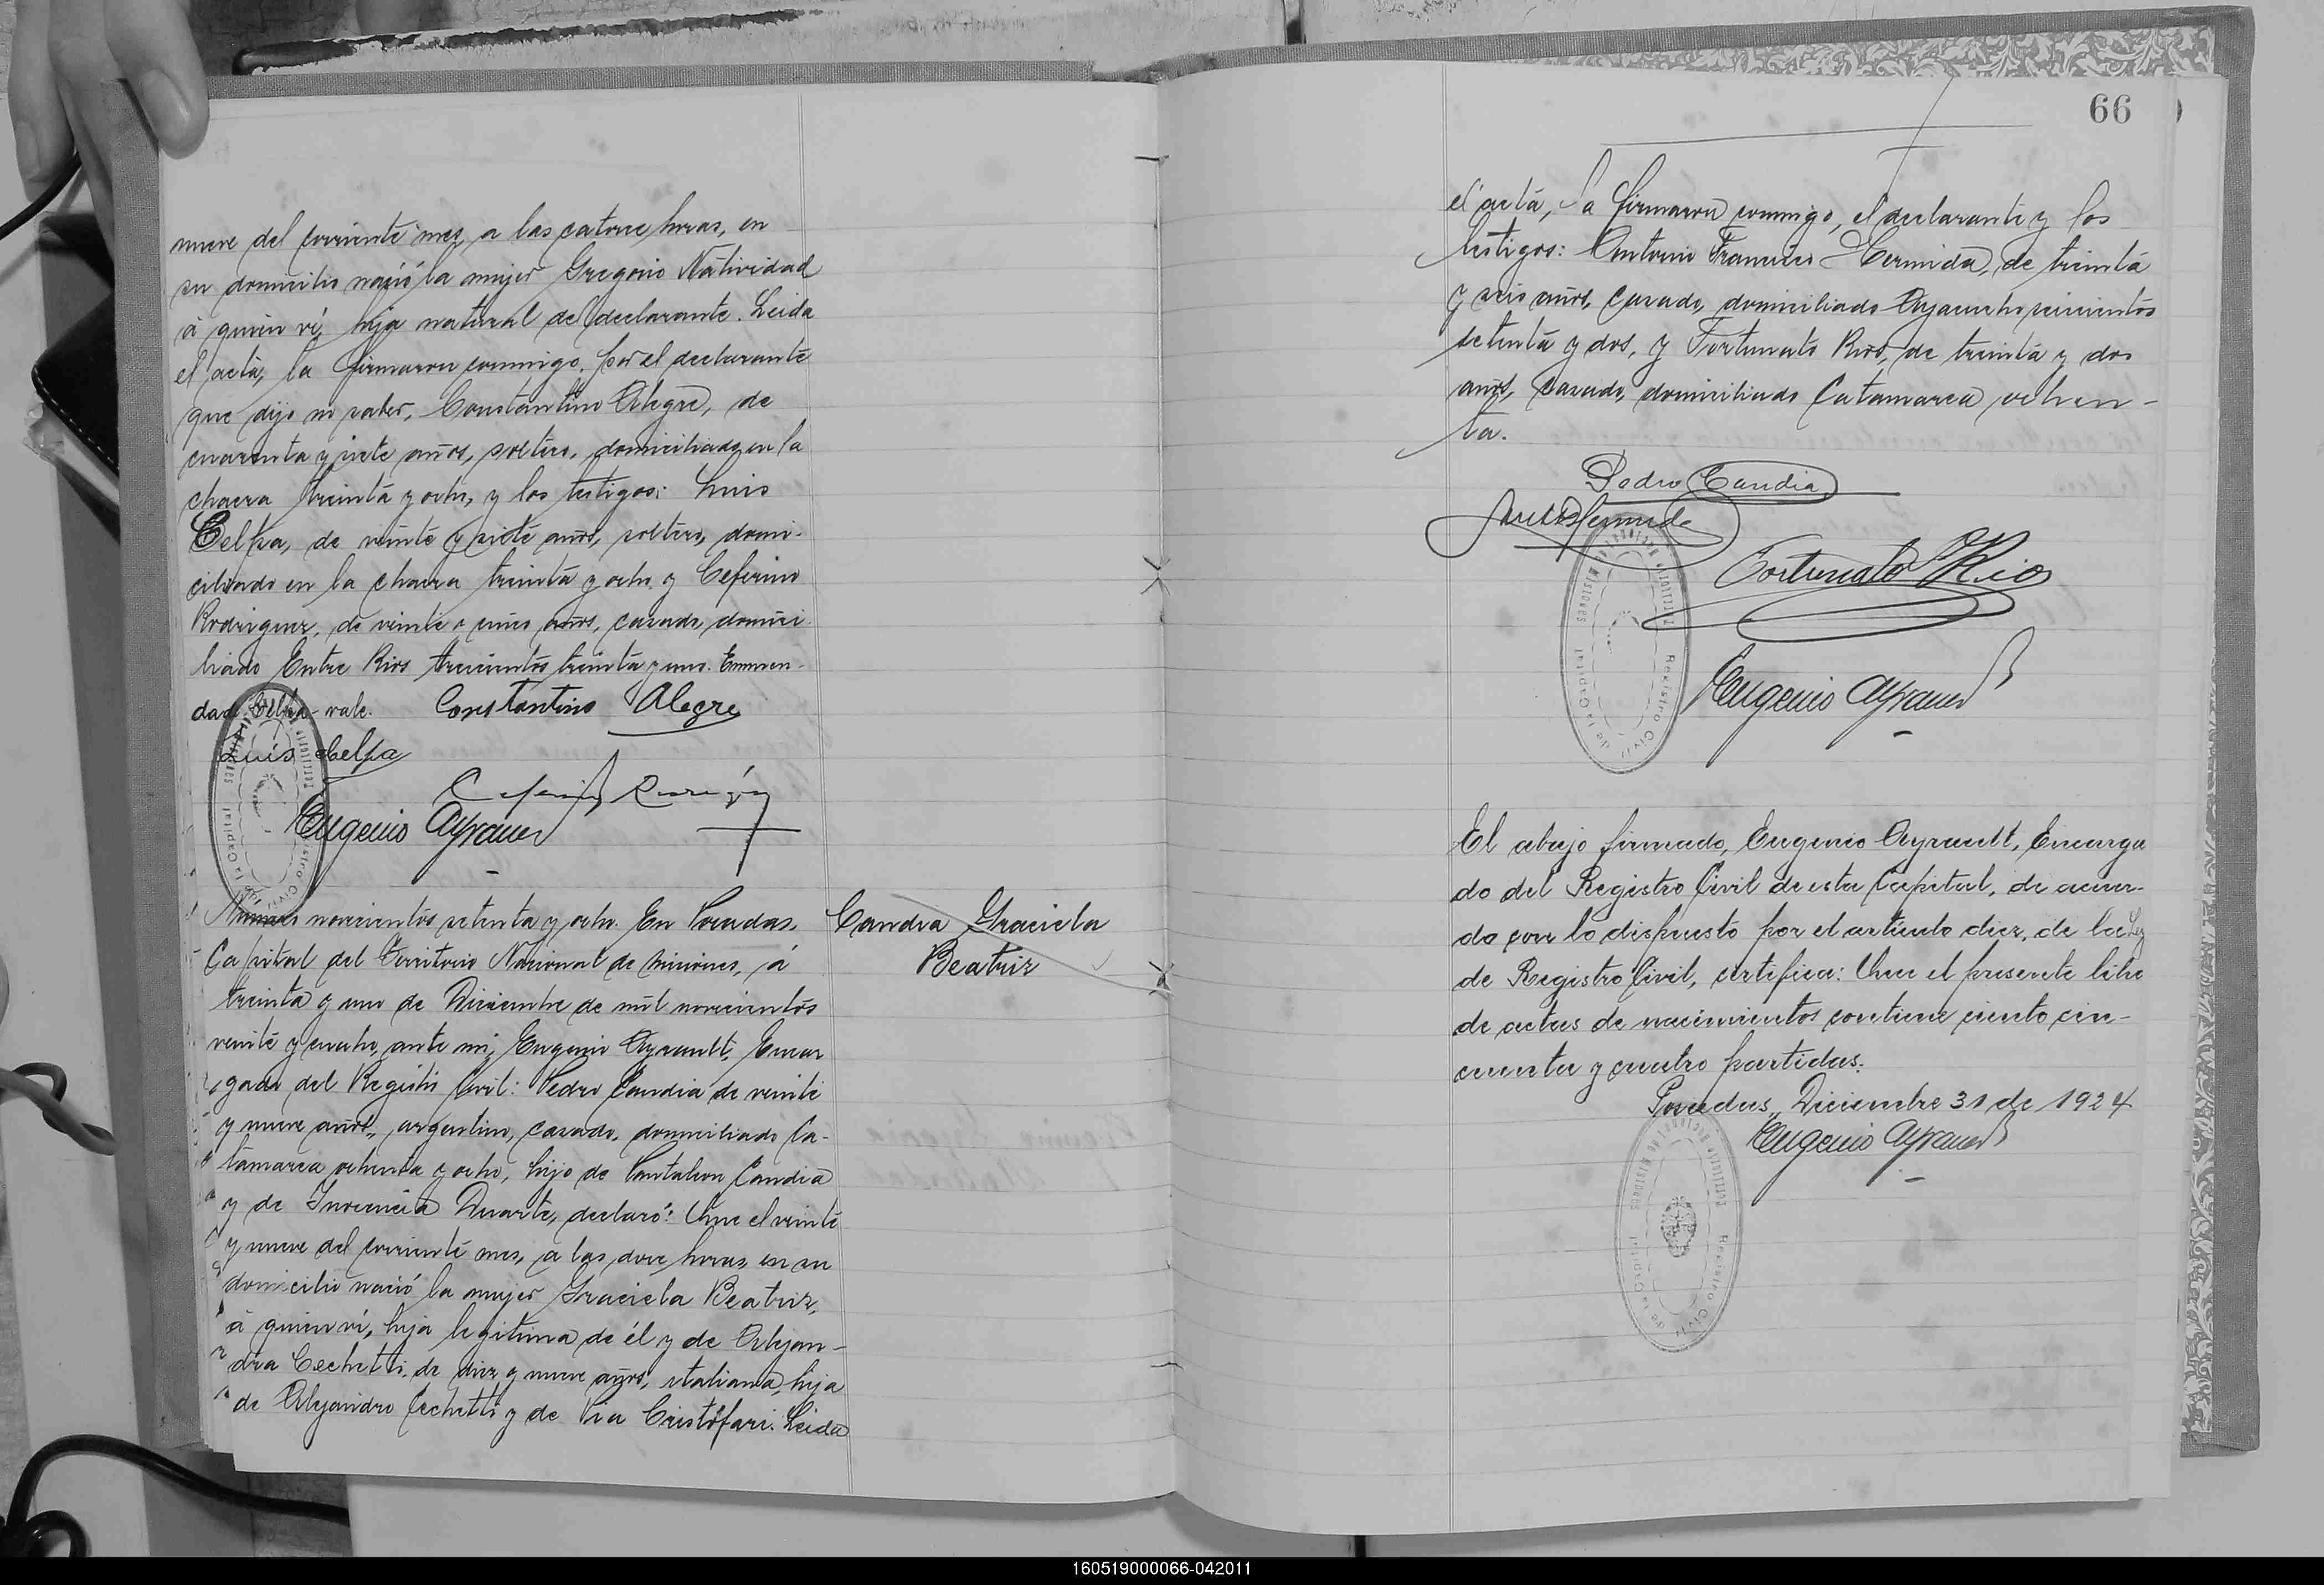 nueve del corriente mes, a las catorce horas, en
su domicilio nació la mujer Gregoria Natividad
à quien ví, hija natural del declarante. Leida
el acta, la firmaron conmigo, por el declarante
que dijo no saber, Constantino Alegre, de
cuarenta y siete años, soltero, domiciliado en la
chacra treinta y ocho, y los testigos: Luis
Celpa, de veinte y siete años, soltero, domi-
ciliado en la chacra treinta y ocho y Ceferino
Rodriguez, de veinte o cinco años, casado, domici
liado Entre Rios trescientos treinta y uno. Enmen-
dado: Celpa - vale. Constantino Alegre
Luis Celpa
Eugenio Ayrault
Número novecientos setenta y ocho. En Posadas,
Capital del Territorio Nacional de Misiones, á
treinta y uno de Diciembre de mil novecientos
veinte y cuatro, ante mi, Eugenio Ayrault, Encar
gado del Registro Civil: Pedro Candia de veinte
y nueve años, argentino, casado, domiciliado Ca-
tamarca ochenta y ocho, hijo de Pantaleon Candia
y de Inocencia Duarte, declaró: Que el veinte
y nueve del corriente mes, a las doce horas, en su
domicilio nació la mujer Graciela Beatriz,
à quien ví, hija legitima de él y de Alejan-
dra Cechetti, de diez y nueve años, italiana, hija
de Alejandro Cechetti y de Pia Cristófari. Leida
Candia Graciela
Beatriz
66
el acta, la firmaron conmigo, el declarante y los
testigos: Antonio Francisco Hermida, de treinta
y seis años, casado, domiciliado Ayacucho seiscientos
setenta y dos, y Fortunato Rios, de treinta y dos
años, casado, domiciliado Catamarca ochen-
ta.
Pedro Candia
Fortunato Rios
Eugenio Ayrault
Territorio Nacional de Misiones
Registro Civil de la Capital
El abajo firmado, Eugenio Ayrault, Encarga
do del Registro Civil de esta Capital, de acuer-
do con lo dispuesto por el artículo diez, de la Ley
de Registro Civil, certifica: Que el presente libro
de actas de nacimientos contiene ciento cin-
cuenta y cuatro partidas.
Posadas, Diciembre 31 de 1924
Eugenio Ayrault
Registro Civil de la Capital
160519000066-042011